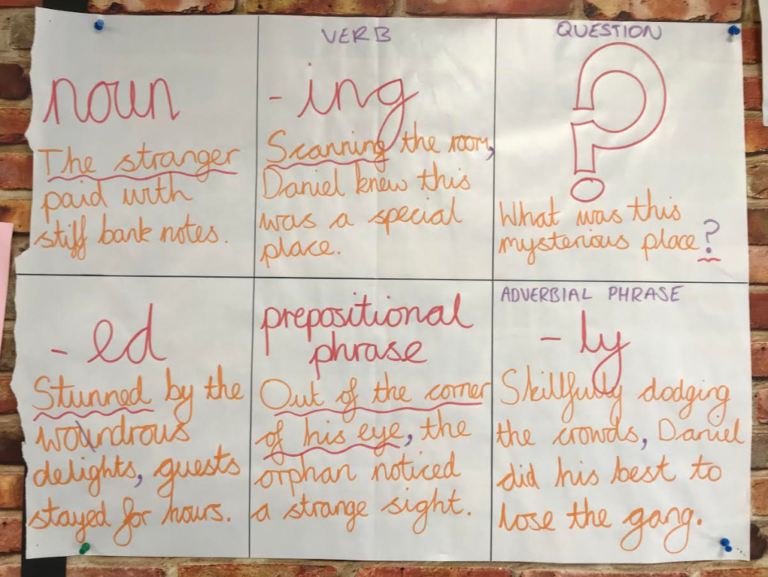 noun
The stranger
paid with
stiff bank notes.
VERB
- ing
Scanning the room,
Daniel knew this
was a special
place.
QUESTION
?
What was this
mysterious place?
- ed
Stunned by the
woundrous
delights, guests
stayed for hours.
prepositional
phrase
Out of the corner
of his eye, the
orphan noticed
a strange sight.
ADVERBIAL PHRASE
- ly
Skillfully dodging
the crowds, Daniel
did his best to
lose the gang.